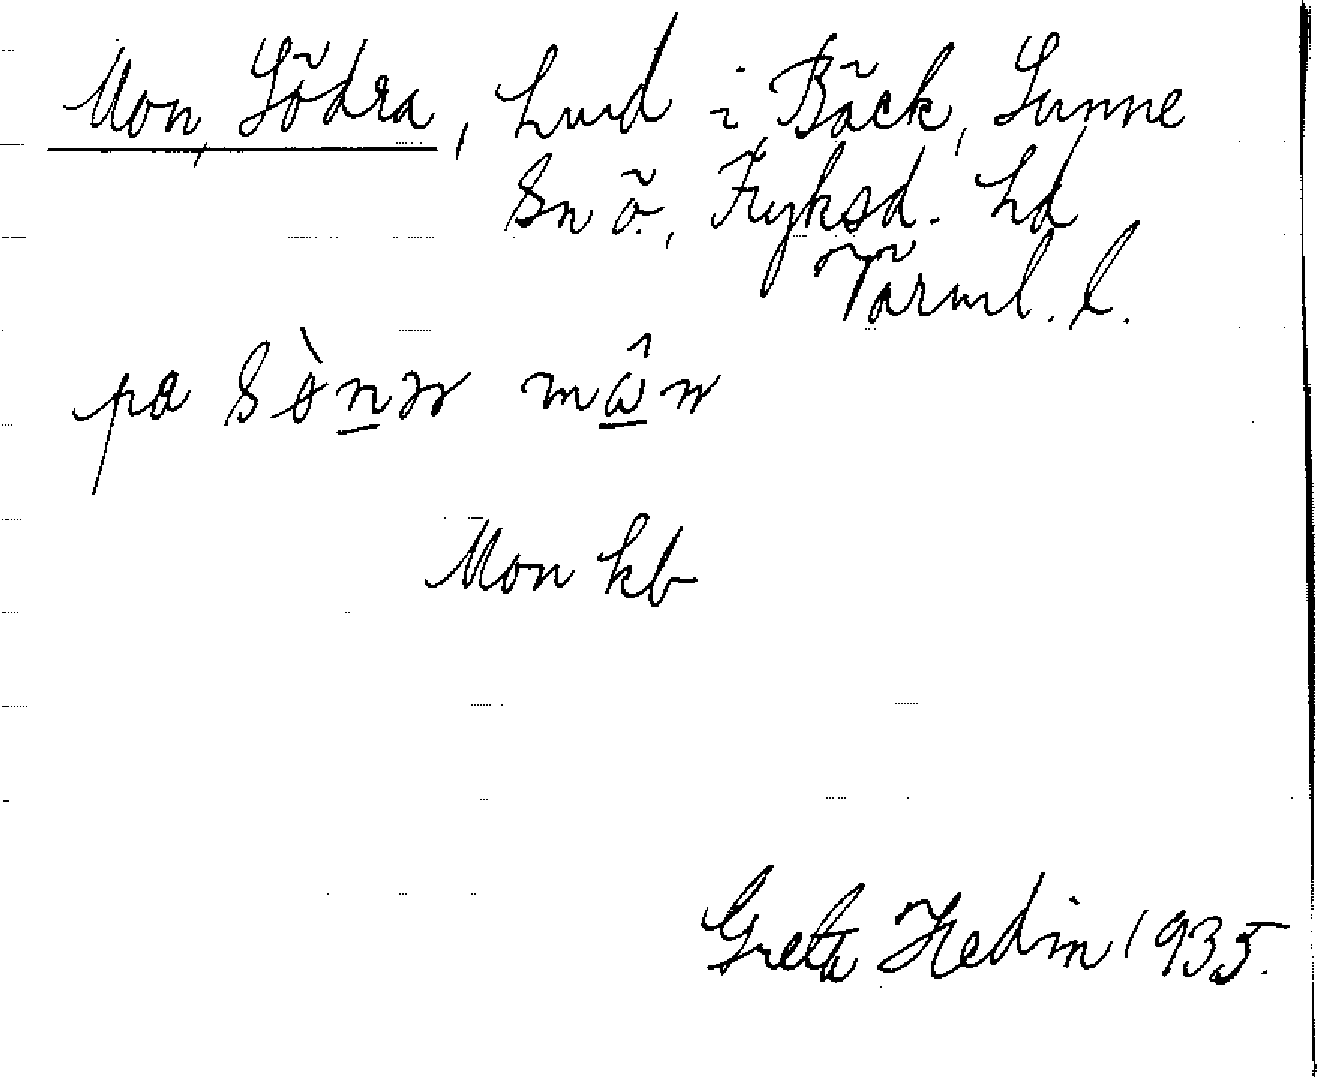 Mon, Södra, hmd i Bäck, Sunne
Sn ö., Fryksd. hd
Värml. l.
pa
Mon kb
Greta Hedin 1935.